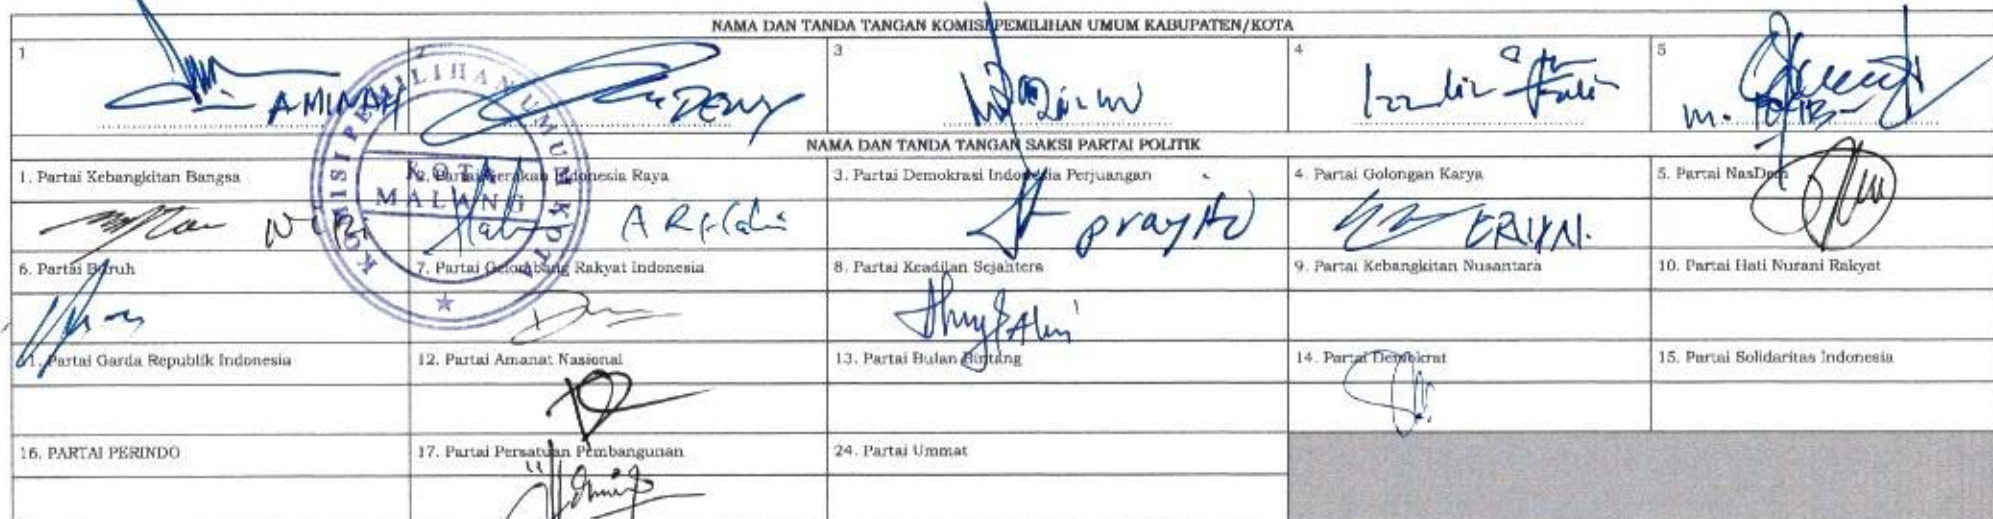 NAMA DAN TANDA TANGAN KOMISI PEMILIHAN UMUM KABUPATEN/KOTA
1 2 3 4 5
AMINAH DENY
KOMISI PEMILIHAN UMUM KOTA
KOTA
MALANG
NAMA DAN TANDA TANGAN SAKSI PARTAI POLITIK
1. Partai Kebangkitan Bangsa 2. Partai Gerakan Indonesia Raya 3. Partai Demokrasi Indonesia Perjuangan 4. Partai Golongan Karya 5. Partai NasDem
prayitno
6. Partai Buruh 7. Partai Gelombang Rakyat Indonesia 8. Partai Keadilan Sejahtera 9. Partai Kebangkitan Nusantara 10. Partai Hati Nurani Rakyat
11. Partai Garda Republik Indonesia 12. Partai Amanat Nasional 13. Partai Bulan Bintang 14. Partai Demokrat 15. Partai Solidaritas Indonesia
16. PARTAI PERINDO 17. Partai Persatuan Pembangunan 24. Partai Ummat